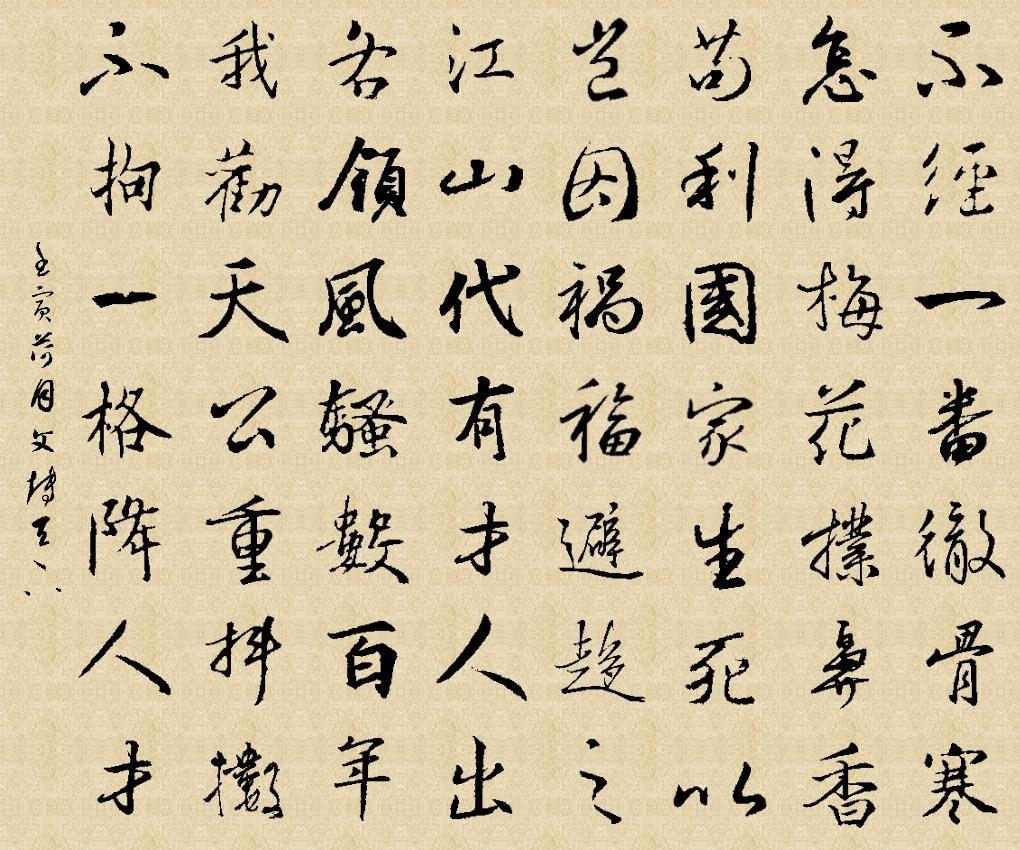 不經一番徹骨寒
怎得梅花撲鼻香
苟利國家生死以
岂因祸福避趍之
江山代有才人出
各領風騷數百年
我勸天公重抖擻
不拘一格降人才
壬寅荷月文博